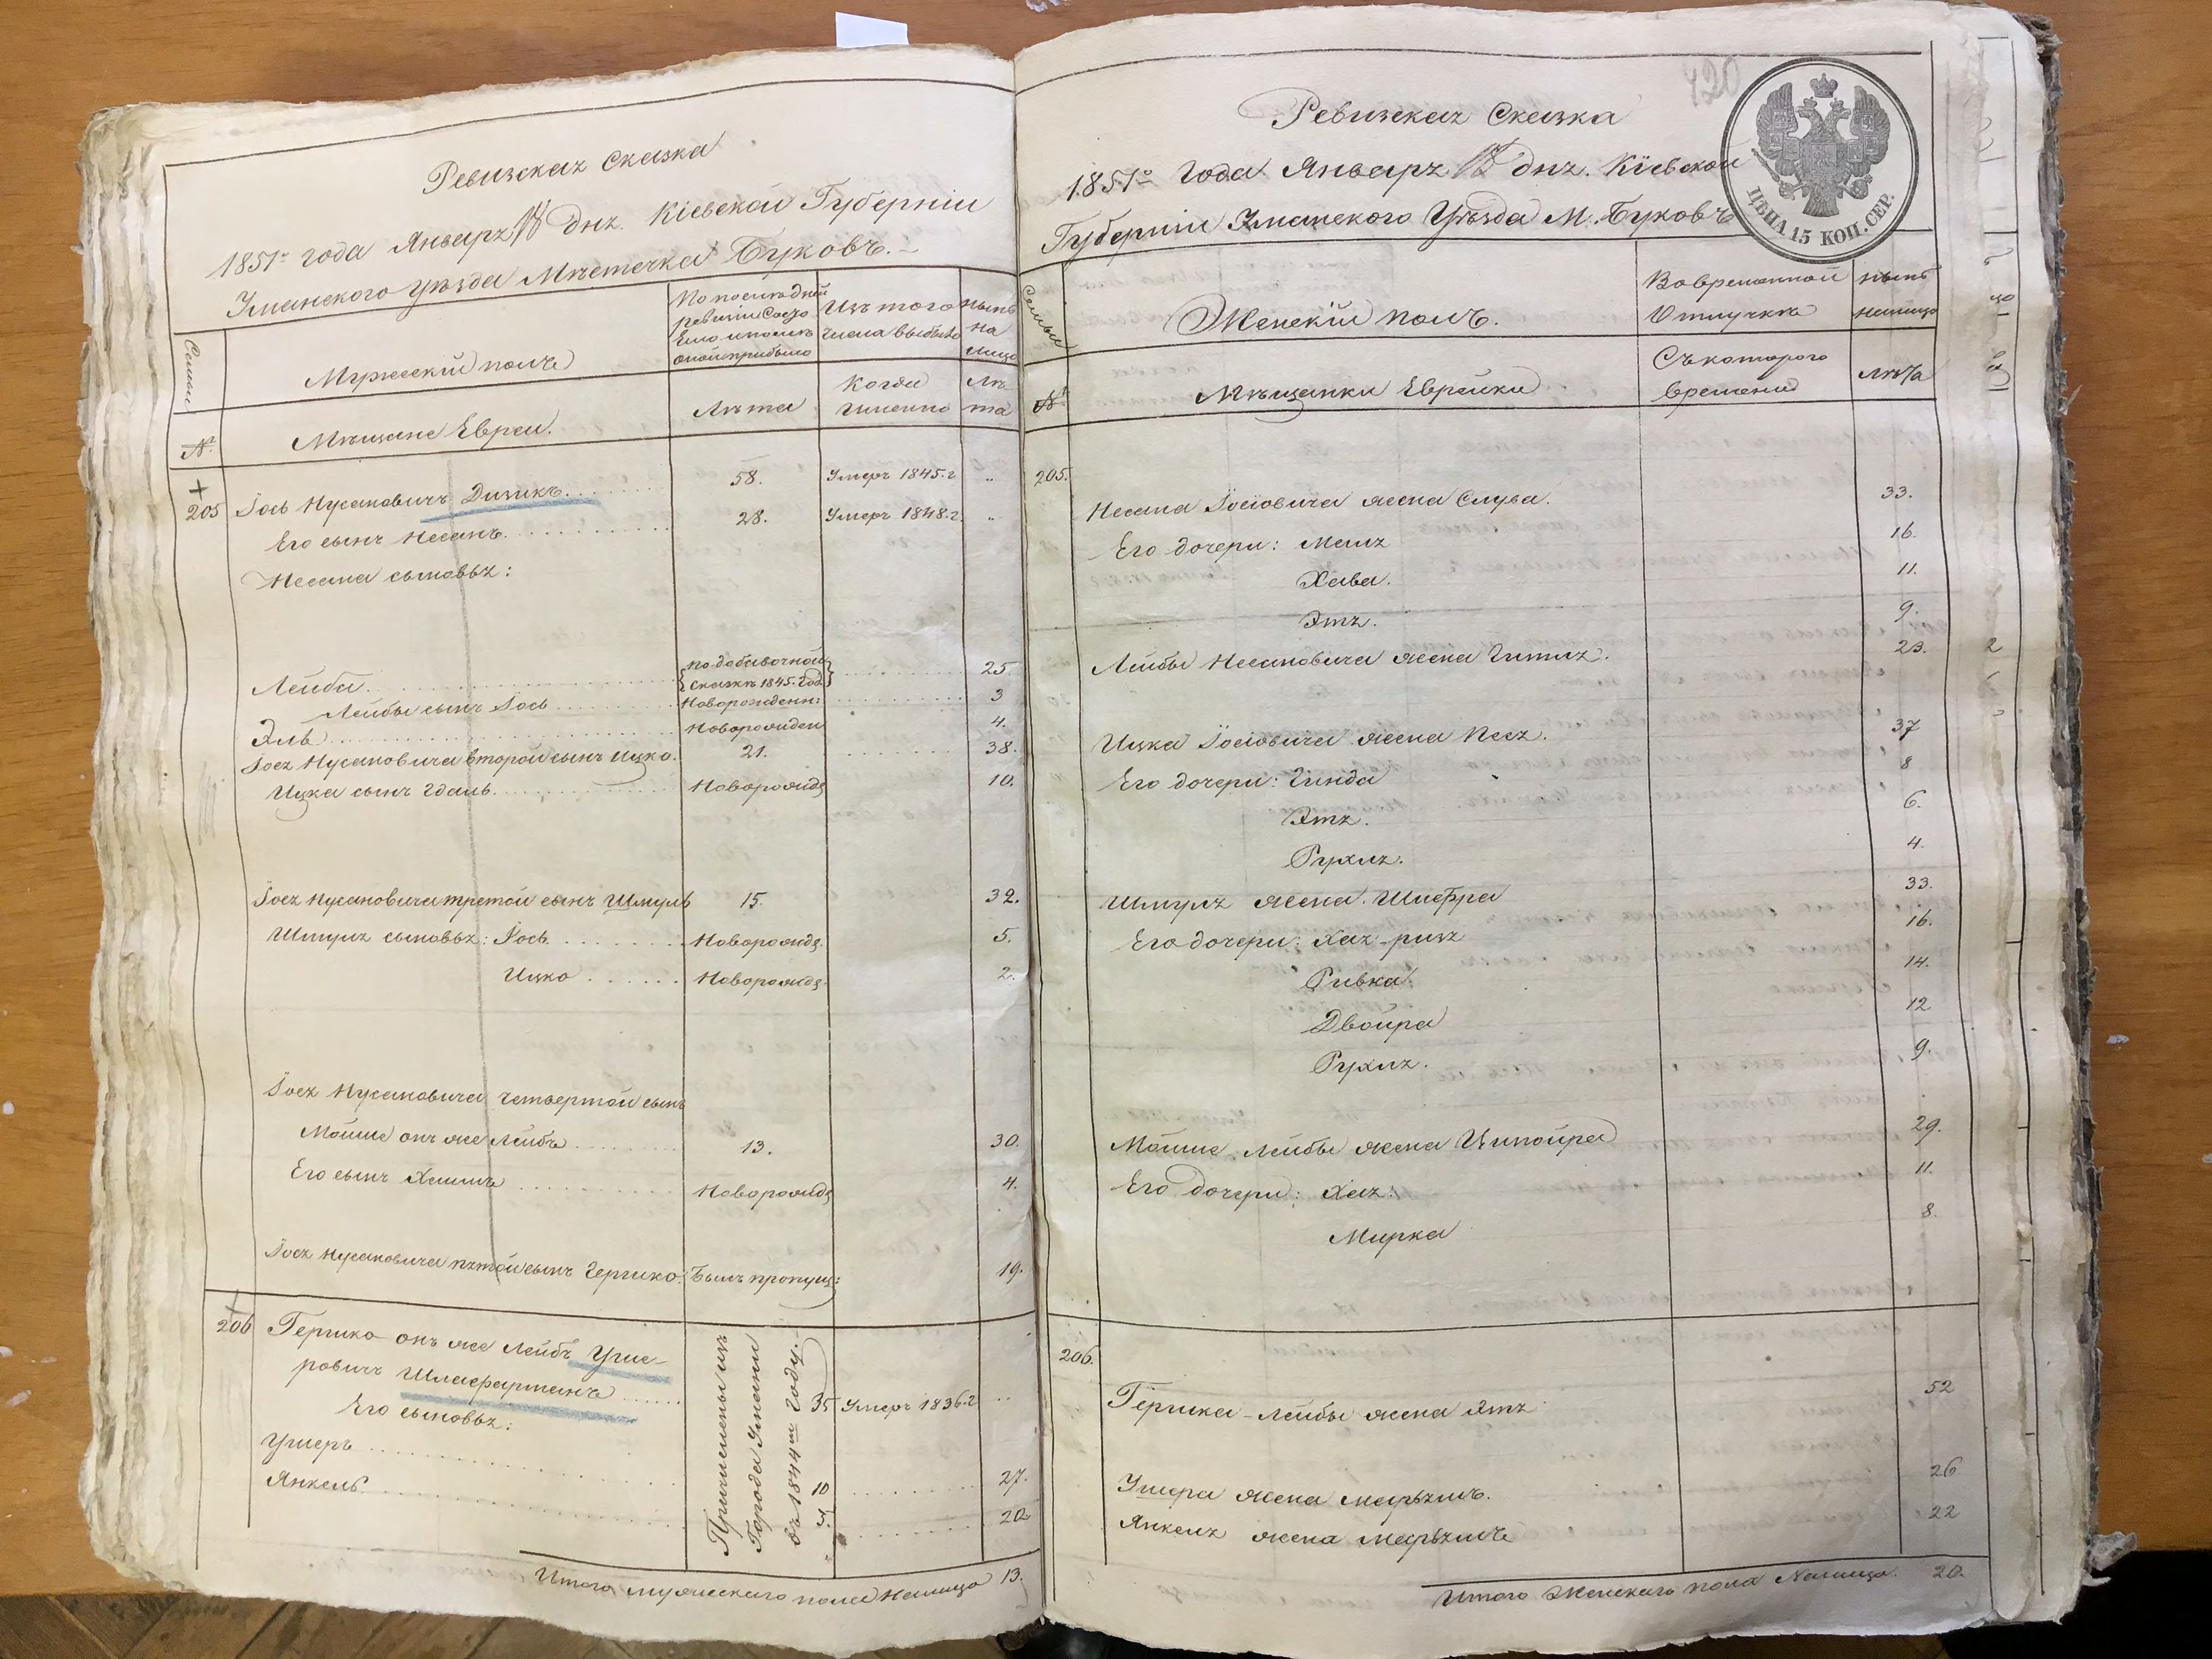 Ревизская Сказка
1851го года Января 18 дня. Кіевской Губерніи
Уманского уѣзда Мѣстечка Буковъ.
Семьи
Мужескій полъ
По послѣдней ревизіи состояло и послѣ оной прибыло
Изъ того числа выбыло
нынѣ на лицо
№
Мѣщане Евреи.
Лѣта
Когда именно
Лѣта
205 Іось Нусановичъ Дизикъ. 58. Умеръ 1845.г „
Его сынъ Несанъ. 28. Умеръ 1848.г. „
Несана сыновья:
Лейба. по добавочной сказкѣ 1845. год. 25
Лейбы сынъ Іось Новорожденн: 3
Эль Новорожден 4.
Іося Нусановича второй сынъ Ицко. 21. 38.
Ицка сынъ Эдаль. Новорожд 10.
Іося Нусановича третой сынъ Шмуль 15. 32.
Шмуля сыновья: Іось Новорожд. 5.
Ицко Новорожд. 2.
Іося Нусановича четвертой сынъ
Мойше онъ же Лейбъ 13. 30.
Его сынъ Хаимъ Новорожд 4.
Іося Нусановича пятой сынъ Гершко. Былъ пропущ: 19.
206 Гершко онъ же Лейбъ Уше-
ровичъ Шлафарманъ 35 Умеръ 1836.г
Его сыновья:
Ушеръ 10 27.
Янкель 3 20
Причислены изъ
Города Умани
въ 1844м году.
Итого мужескаго пола на лицо 13.
420
Ревизская Сказка
1851го Года Января 18 дня. Кіевской
Губерніи Уманского Уѣзда М. Буковъ
ЦѢНА 15 КОП. СЕР.
Семьи
Женскій полъ.
Во временной Отлучкѣ
нынѣ налицо
№
Мѣщанки Еврейки
Съ которого времени
лѣта
205.
Несана Іосіовича жена Слува. 33.
Его дочери: Маля 16.
Хава. 11.
Этя. 9.
Лейбы Несановича жена Гитля. 23.
Ицка Іосіовича жена Песя. 37
Его дочери: Гинда 8
Этя. 6.
Рухля. 4.
Шмуля жена. Шифра 33.
Его дочери: Хая-ризя 16.
Ривка. 14.
Двойра 12
Рухля. 9.
Мойше Лейбы жена Ципойра 29.
Его дочери: Хая. 11.
Мирка 8.
206.
Гершка-Лейбы жена Этя 52
Ушера жена Марьямъ. 26
Янкеля жена Марьямъ 22
Итого Женскаго пола Налицо. 20.